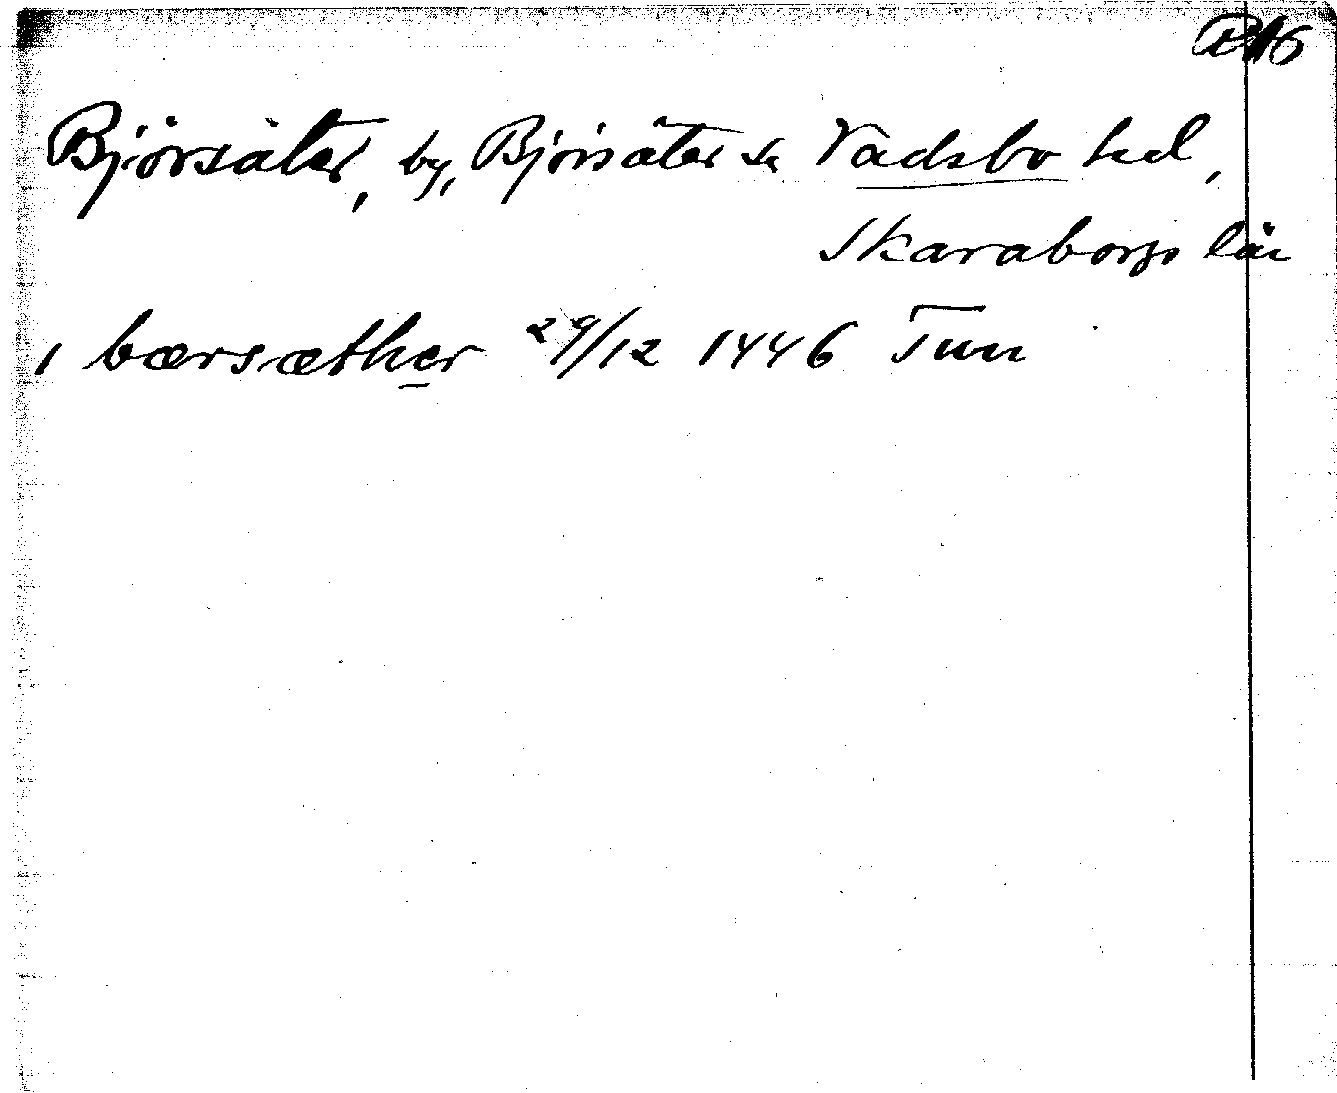 Björsäter, by, Björsäter sn Vadsbo hd,
Skaraborgs län
i bærsæther 29/12 1446 Tun